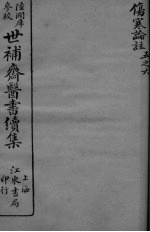 傷寒論註 五之六
陸閏庠
參校
世補齋醫書續集
上海
江東書局
印行